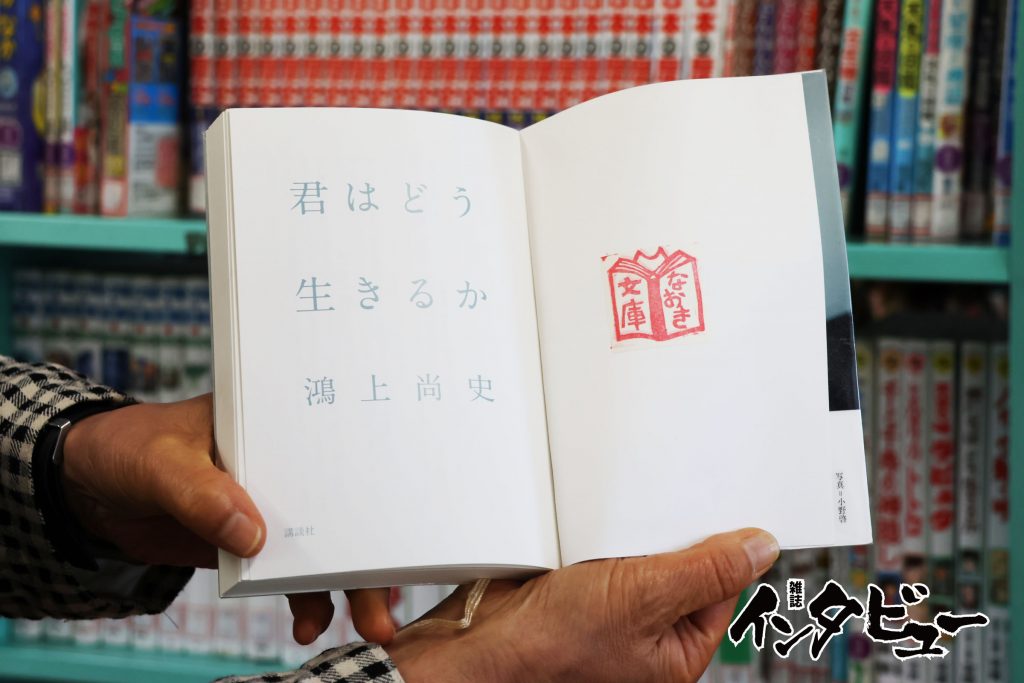 君はどう
生きるか
鴻上尚史
講談社
なおき
文庫
写真＝小野啓
雑誌
インタビュー